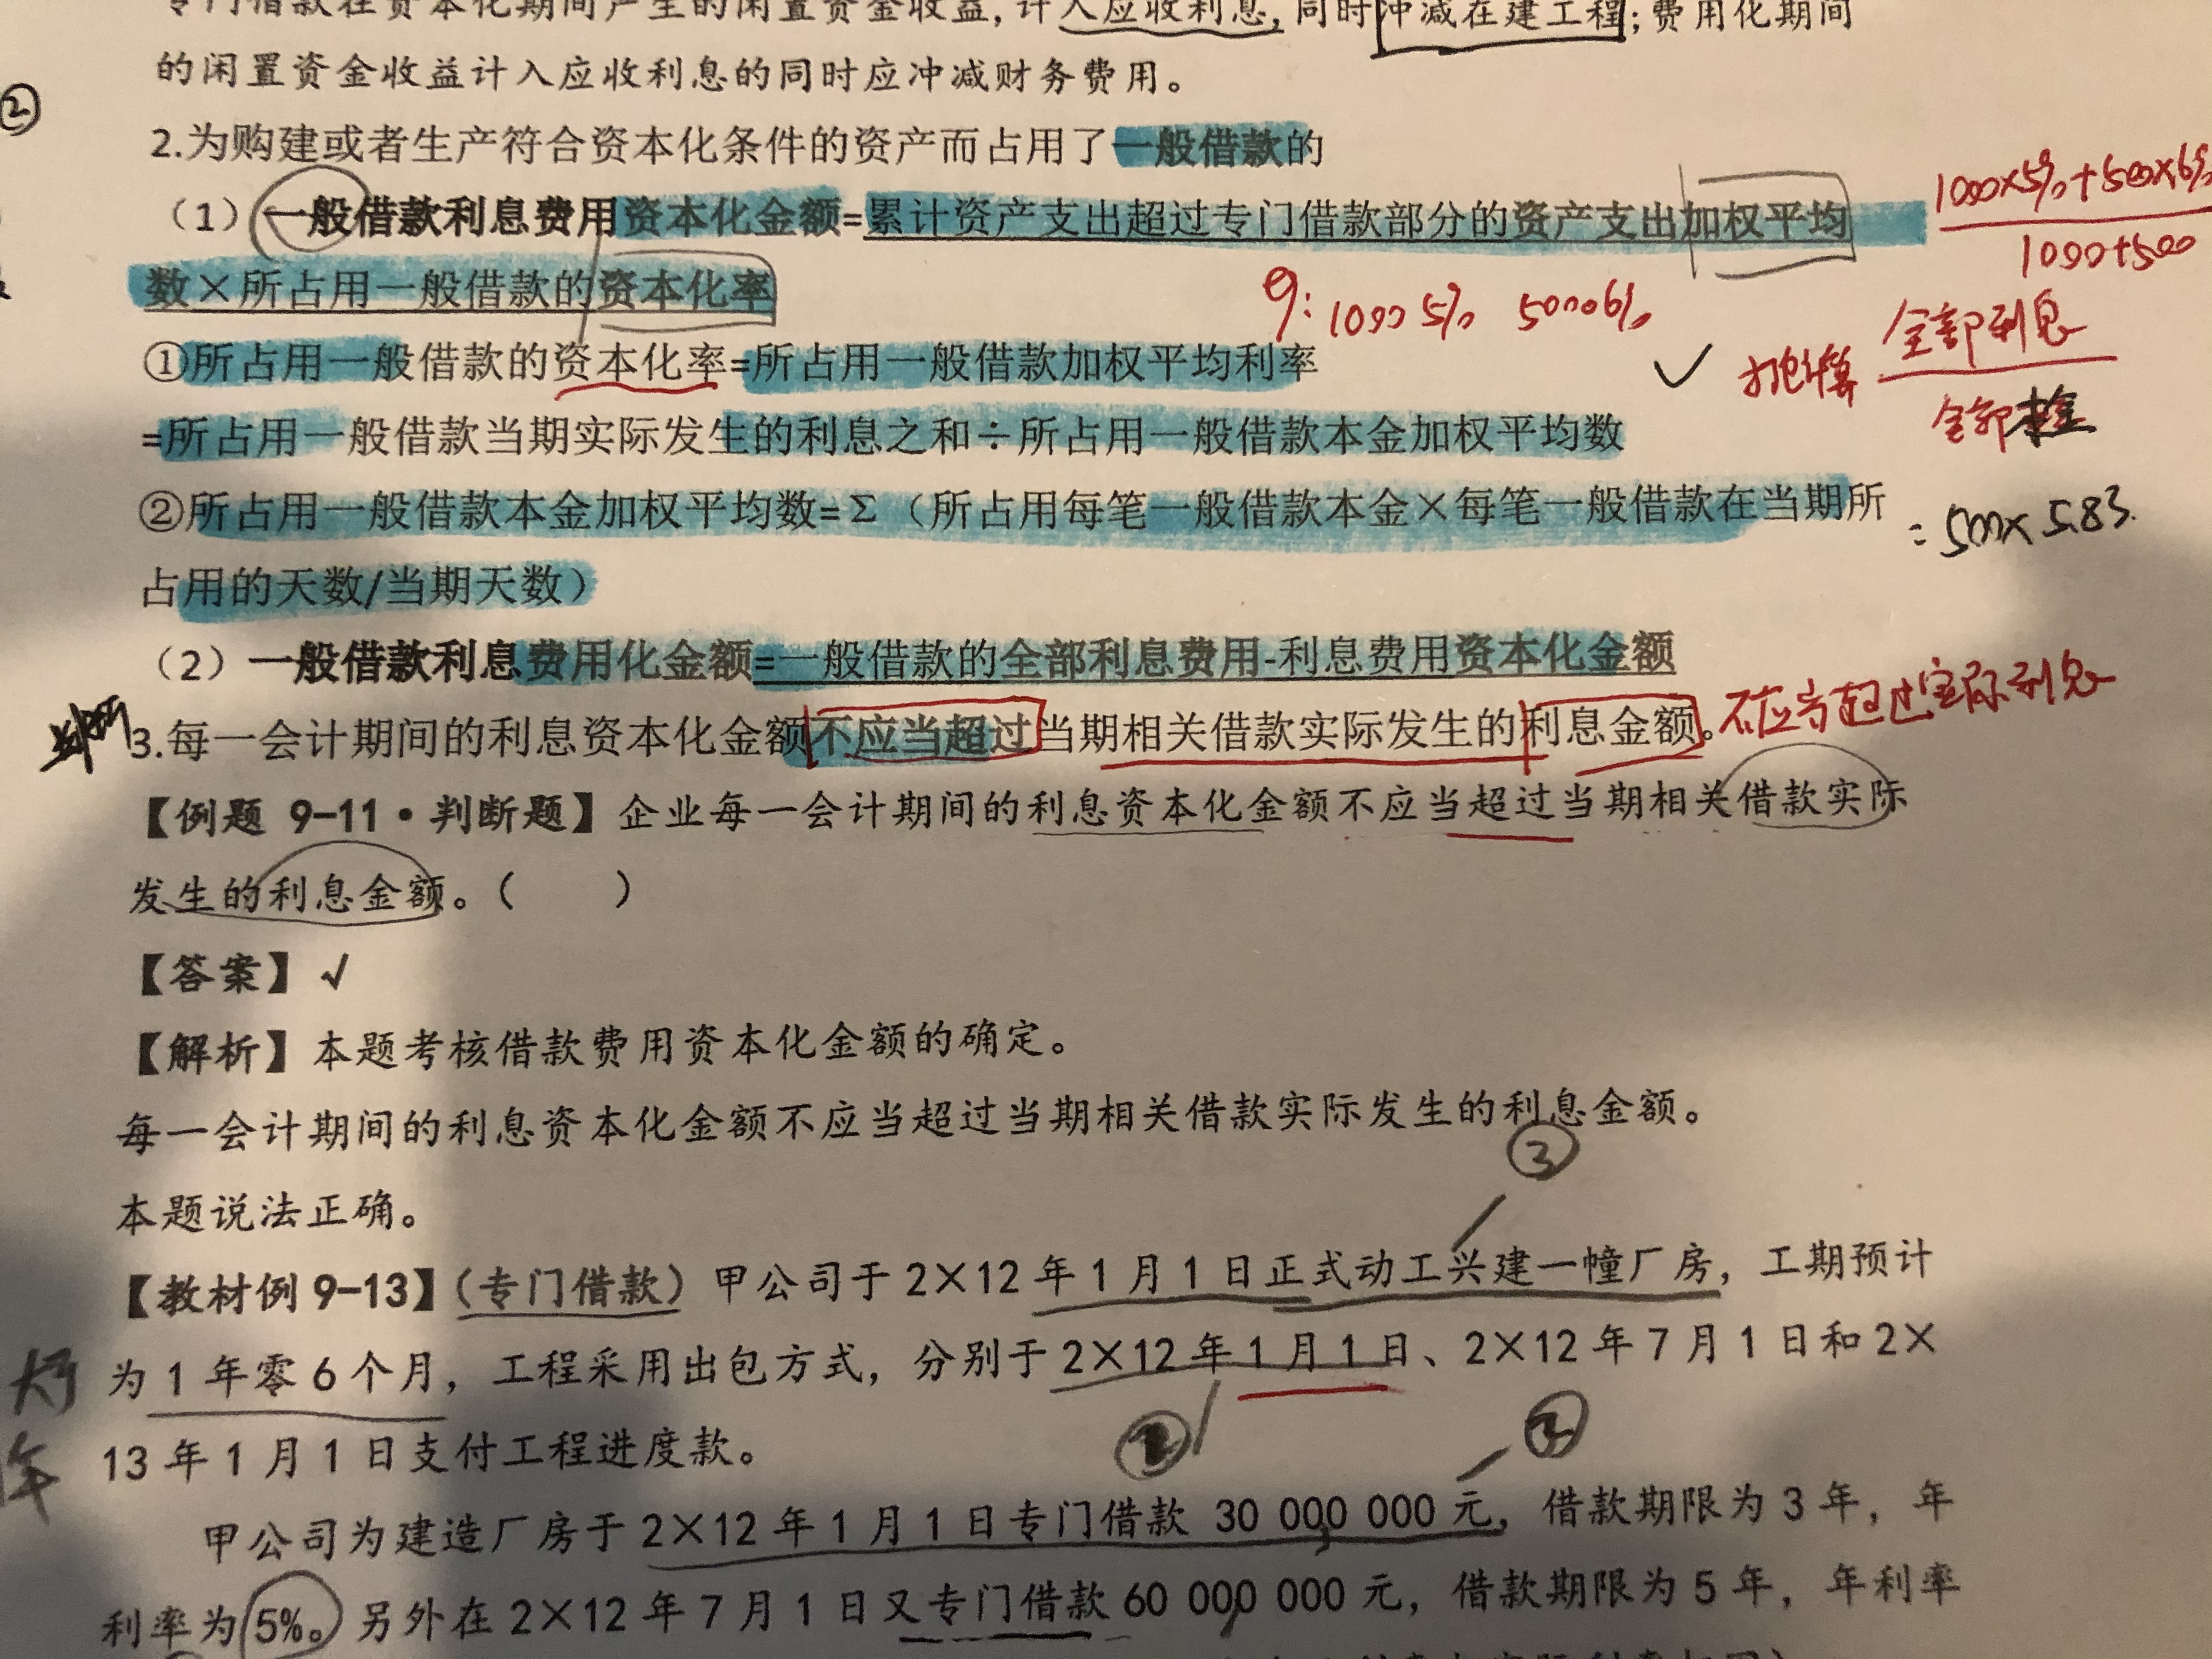 专门借款在资本化期间产生的闲置资金收益,计入应收利息,同时冲减在建工程;费用化期间
的闲置资金收益计入应收利息的同时应冲减财务费用。
②
2.为购建或者生产符合资本化条件的资产而占用了一般借款的
(1)一般借款利息费用资本化金额=累计资产支出超过专门借款部分的资产支出加权平均
数×所占用一般借款的资本化率
1000×5%+500×6%
1000+500
9: 1000 5% 500 6%
①所占用一般借款的资本化率=所占用一般借款加权平均利率
✓ 打包计算 全部利息
全部本金
=所占用一般借款当期实际发生的利息之和÷所占用一般借款本金加权平均数
②所占用一般借款本金加权平均数=Σ(所占用每笔一般借款本金×每笔一般借款在当期所
占用的天数/当期天数)
=500×5.83
(2)一般借款利息费用化金额=一般借款的全部利息费用-利息费用资本化金额
3.每一会计期间的利息资本化金额不应当超过当期相关借款实际发生的利息金额。
不应当超过实际利息
【例题 9-11·判断题】企业每一会计期间的利息资本化金额不应当超过当期相关借款实际
发生的利息金额。( )
【答案】√
【解析】本题考核借款费用资本化金额的确定。
每一会计期间的利息资本化金额不应当超过当期相关借款实际发生的利息金额。
③
本题说法正确。
【教材例 9-13】(专门借款)甲公司于 2×12 年 1 月 1 日正式动工兴建一幢厂房,工期预计
为 1 年零 6 个月,工程采用出包方式,分别于 2×12 年 1 月 1 日、2×12 年 7 月 1 日和 2×
13 年 1 月 1 日支付工程进度款。
②
甲公司为建造厂房于 2×12 年 1 月 1 日专门借款 30 000 000 元,借款期限为 3 年,年
利率为 5%。另外在 2×12 年 7 月 1 日又专门借款 60 000 000 元,借款期限为 5 年,年利率